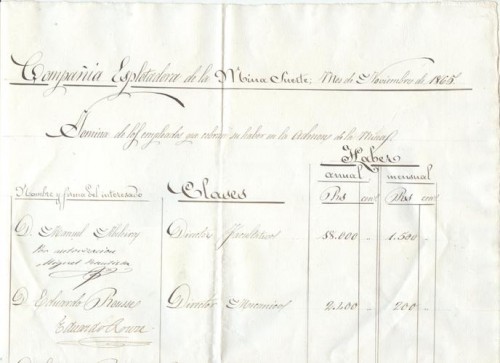 Compañia Esplotadora de la Mina Suerte; Mes de Noviembre de 1865
Nomina de los empleados que cobran su haber en la Admon de la Mina
Haber
anual mensual
Nombre y firma del interesado Clases Prs cent Prs cent
D. Manuel Director Facultativo 18.000 1.500
Por autorizacion
Miguel
D. Eduardo Director Economico 2.400 200
Eduardo